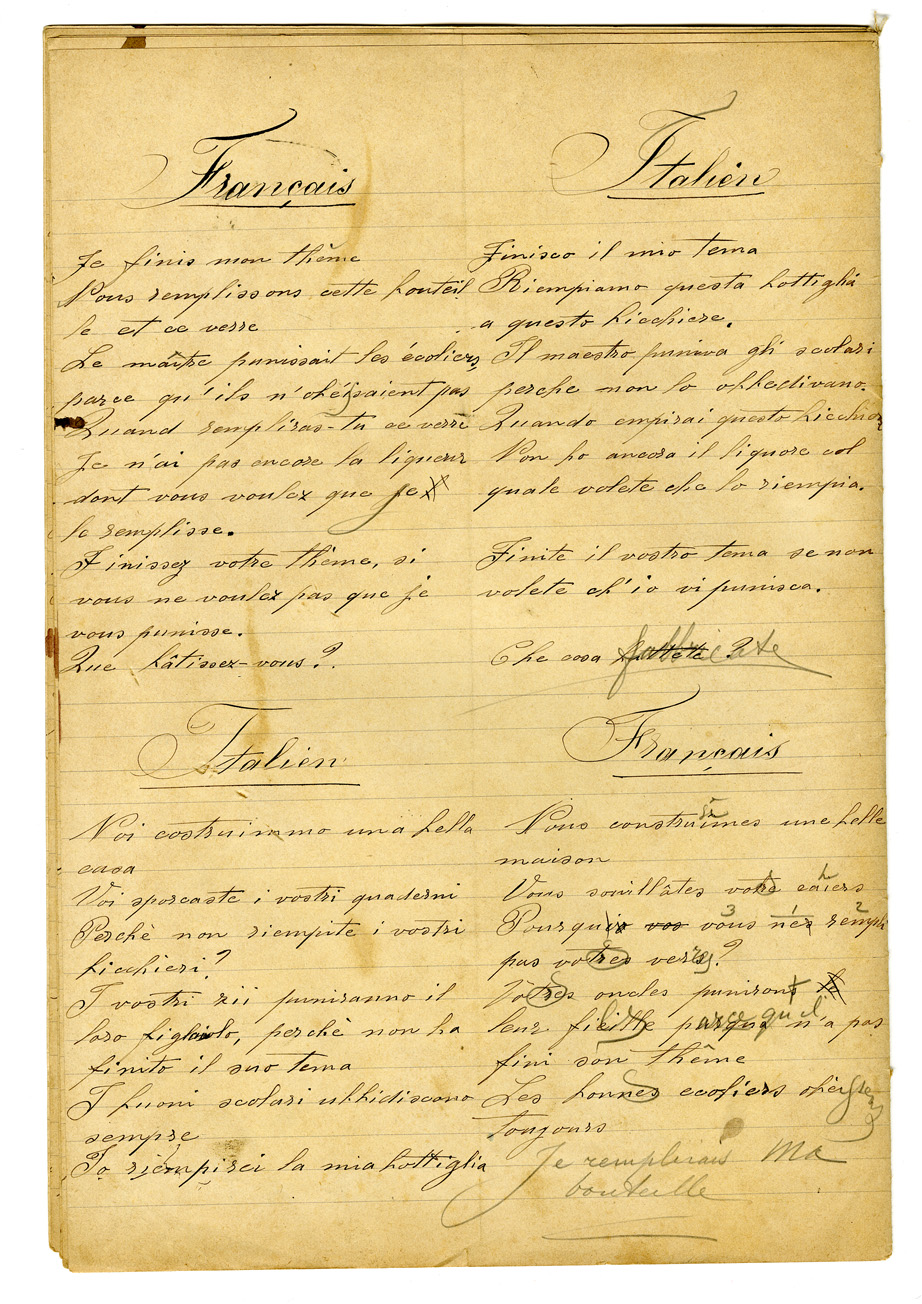 Français
Je finis mon thême
Nous remplissons cette bouteil
le et ce verre
Le maître punissait les écoliers
parce qu'ils n'obéissaient pas
Quand rempliras-tu ce verre
Je n'ai pas encore la liqueur
dont vous voulez que je
le remplisse.
Finissez votre thême, si
vous ne voulez pas que je
vous punisse.
Que bâtissez-vous ?.
Italien
Finisco il mio tema
Riempiamo questa bottiglia
a questo bicchiere.
Il maestro puniva gli scolari
perche non lo obbedivano.
Quando empirai questo bicchier
Non ho ancora il liquore col
quale volete che lo riempia.
Finite il vostro tema se non
volete ch'io vi punisca.
Che cosa fabbricate ?
Italien
Noi costruimmo una bella
casa
Voi sporcaste i vostri quaderni
Perchè non riempite i vostri
bicchieri?
I vostri zii puniranno il
loro figliuolo, perchè non ha
finito il suo tema
I buoni scolari ubbidiscono
sempre
Io riempirei la mia bottiglia
Français
Nous construimes une belle
maison
Vous souillâtes votre cahiers
Pourquoi vos vous nés rempli
pas votres verres?
Votres oncles puniront
leur parce qu'il n'a pas
fini son thême
Les bonnes ecoliers
tougours
Je remplirais Ma
bouteille